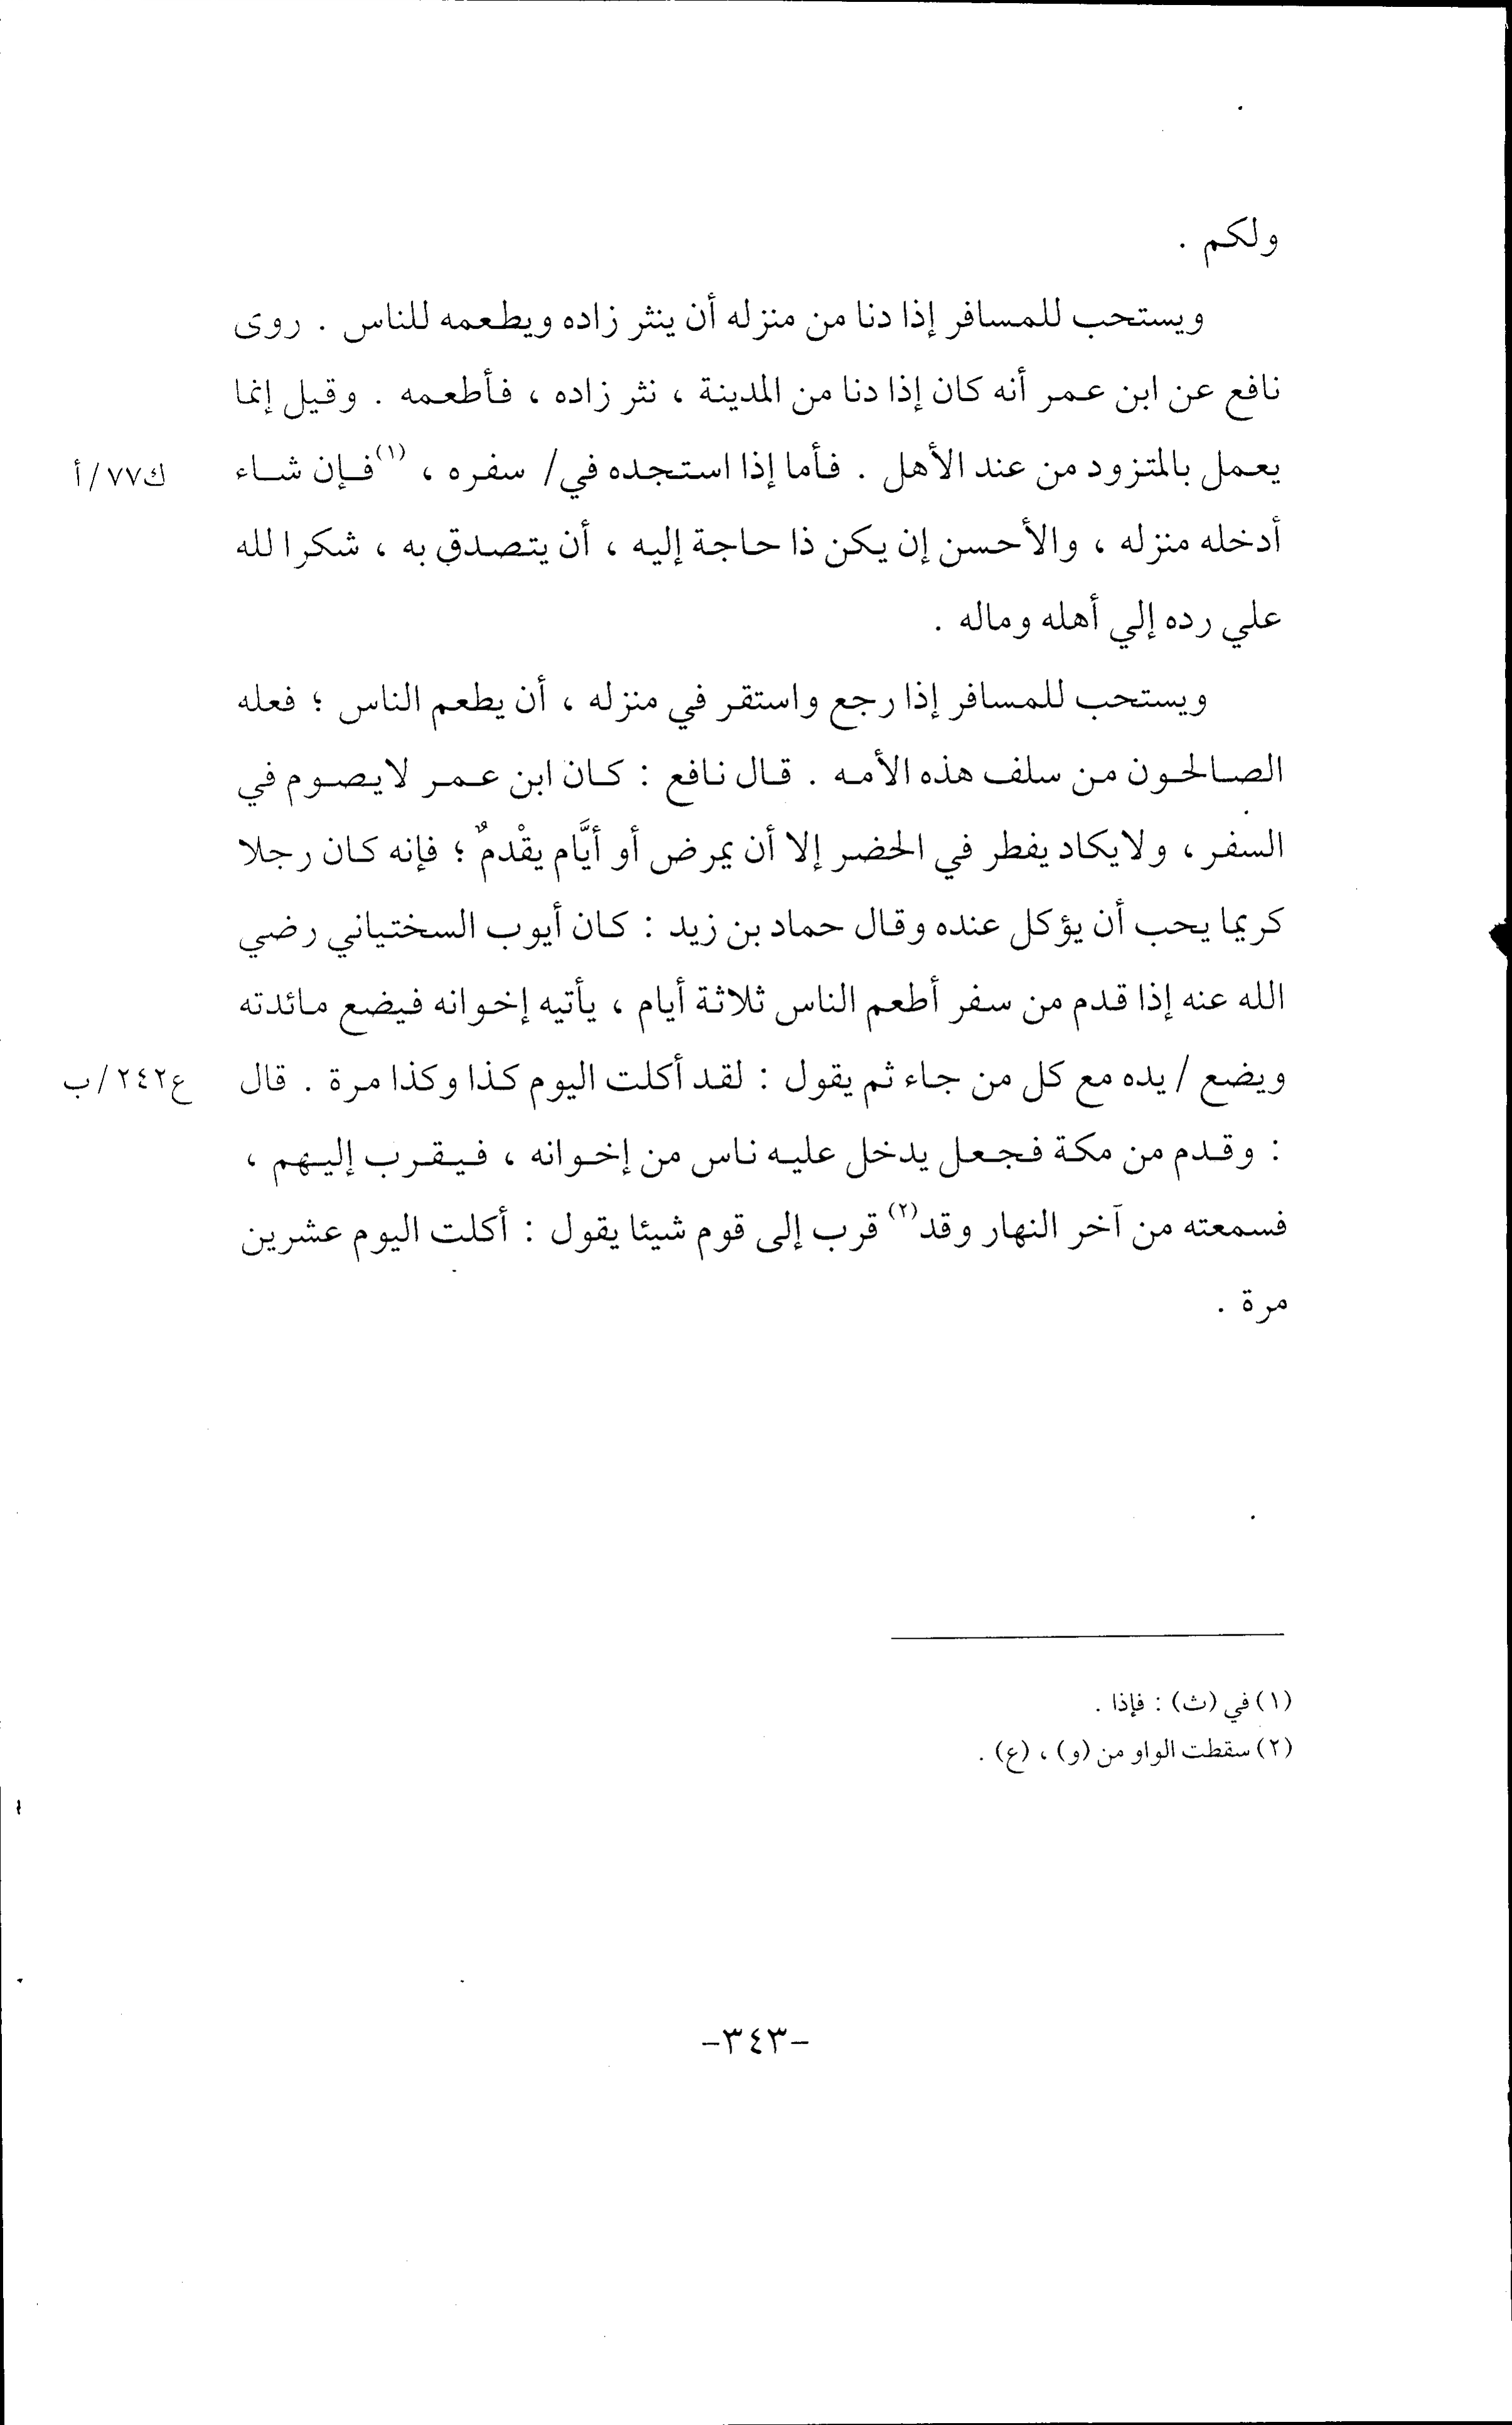 ولكم .
ويستحب للمسافر إذا دنا من منزله أن ينثر زاده ويطعمه للناس . روى
نافع عن ابن عمر أنه كان إذا دنا من المدينة ، نثر زاده ، فأطعمه . وقيل إنما
يعمل بالمتزود من عند الأهل . فأما إذا استجده في/ سفره ، (١)فإن شاء
ك٧٧/أ
أدخله منزله ، والأحسن إن يكن ذا حاجة إليه ، أن يتصدق به ، شكرا لله
علي رده إلي أهله وماله .
ويستحب للمسافر إذا رجع واستقر في منزله ، أن يطعم الناس ؛ فعله
الصالحون من سلف هذه الأمه . قال نافع : كان ابن عمر لايصوم في
السفر ، ولايكاد يفطر في الحضر إلا أن يمرض أو أيَّام يقْدمٌ ؛ فإنه كان رجلا
كريما يحب أن يؤكل عنده وقال حماد بن زيد : كان أيوب السختياني رضي
الله عنه إذا قدم من سفر أطعم الناس ثلاثة أيام ، يأتيه إخوانه فيضع مائدته
ويضع / يده مع كل من جاء ثم يقول : لقد أكلت اليوم كذا وكذا مرة . قال
ع٢٤٢/ب
: وقدم من مكة فجعل يدخل عليه ناس من إخوانه ، فيقرب إليهم ،
فسمعته من آخر النهار وقد(٢) قرب إلى قوم شيئا يقول : أكلت اليوم عشرين
مرة .
(١) في (ث) : فإذا .
(٢) سقطت الواو من (و) ، (ع) .
-٣٤٣-